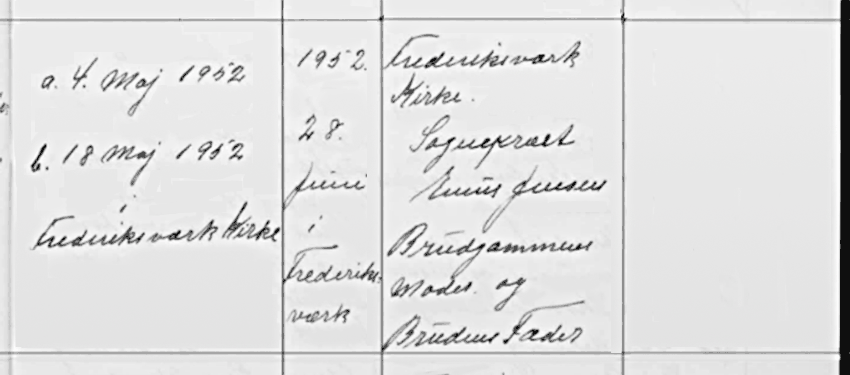 a. 4. Maj 1952
b. 18 Maj 1952
i
Frederiksværk Kirke
1952.
28.
Juni
i
Frederiks-
værk
Frederiksværk
Kirke.
Sognepræst
Jensen
Brudgommens
Moder og
Brudens Fader